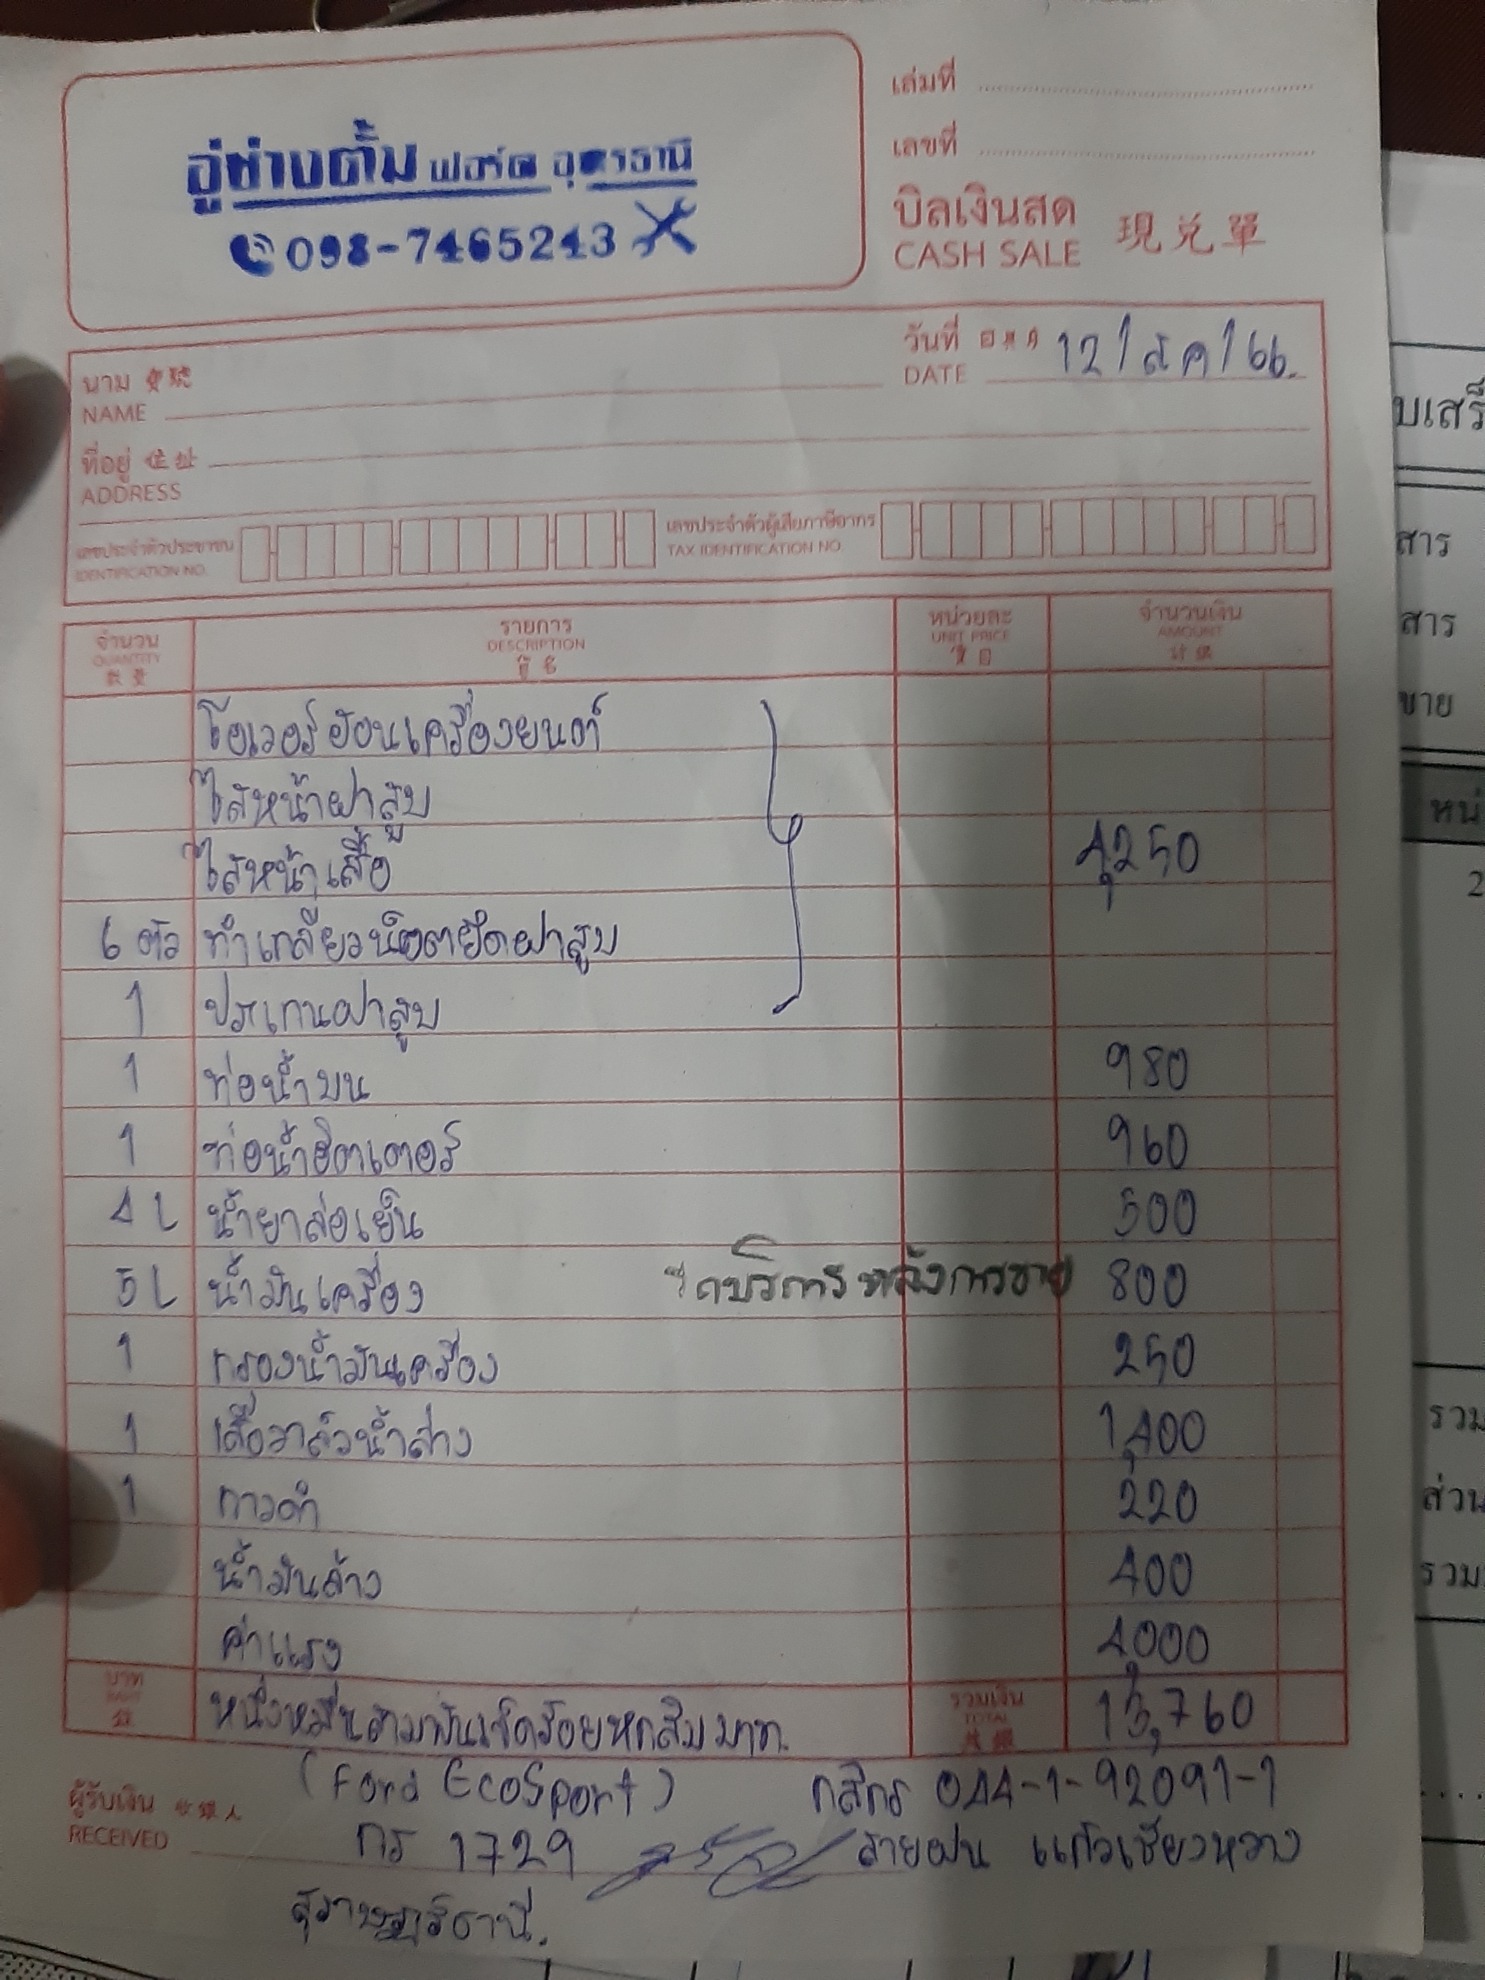 เล่มที่
เลขที่
อู่ช่างตั้ม ฟอร์ด อุดรธานี
098-7465243
บิลเงินสด 現兑單
CASH SALE
วันที่ 12/สค/66.
DATE
นาม
NAME
ที่อยู่ 住址
ADDRESS
เลขประจำตัวประชาชน
IDENTIFICATION NO.
เลขประจำตัวผู้เสียภาษีอากร
TAX IDENTIFICATION NO.
จำนวน รายการ หน่วยละ จำนวนเงิน
QUANTITY DESCRIPTION UNIT PRICE AMOUNT
โอเวอร์ฮอนเครื่องยนต์
ไสหน้าฝาสูบ
ไสหน้าเสื้อ 4,250
6 ตัว ทำเกลียวน็อตยึดฝาสูบ
1 ปะเกนฝาสูบ
1 ท่อน้ำบน 980
1 ท่อน้ำฮิตเตอร์ 960
4 L น้ำยาล่อเย็น 500
5 L น้ำมันเครื่อง บริการหลังการขาย 800
1 กรองน้ำมันเครื่อง 250
1 เสื้อวาล์วน้ำล่าง 1,400
1 กาวดำ 220
น้ำมันล้าง 400
ค่าแรง 4,000
บาท หนึ่งหมื่นสามพันเจ็ดร้อยหกสิบบาท. รวมเงิน 13,760
BAHT TOTAL
(Ford EcoSport) กสิกร 044-1-92091-1
ผู้รับเงิน
RECEIVED กร 1729 สายฝน แก้วเชียงหวาง
สุราษฎร์ธานี.
บเสร็
สาร
สาร
ขาย
หน่
2
รวม
ส่วน
รวม